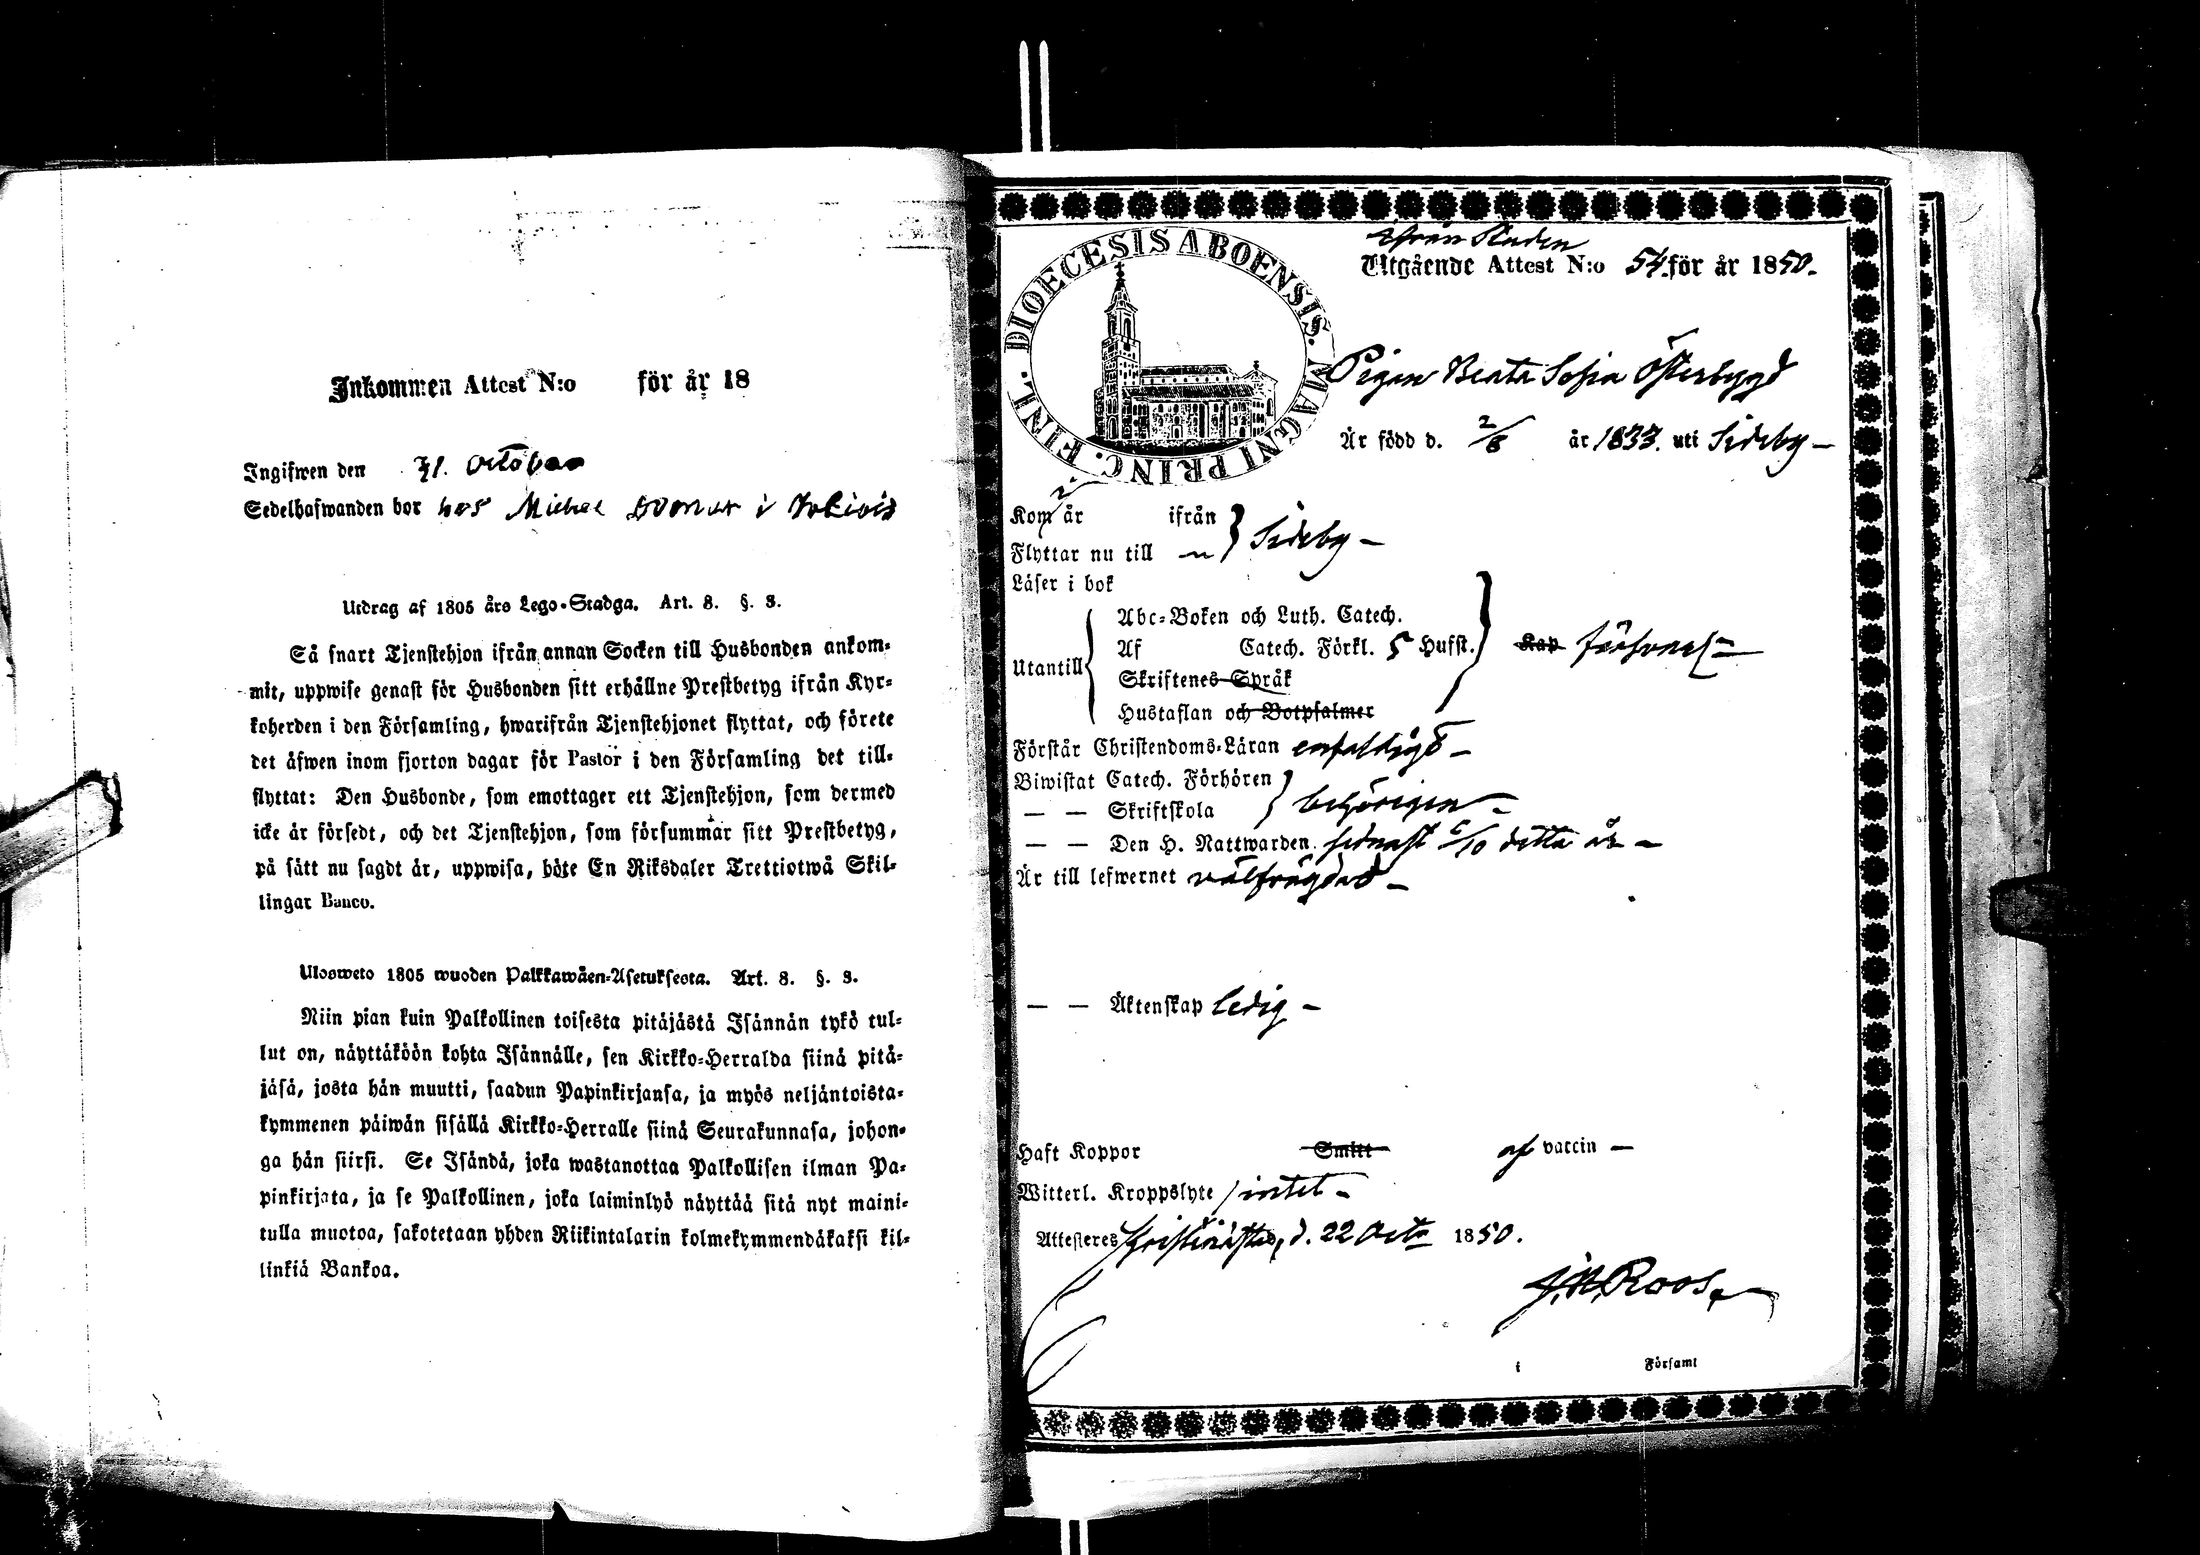 Inkommen Attest N:o för år 18
Ingifwen den 31. October
Sedelhafwanden bor hos Michel i
Utdrag af 1805 års Lego-Stadga. Art. 8. §. 3.
Så snart Tjenstehjon ifrån annan Socken till Husbonden ankom-
mit, uppwise genast för Husbonden sitt erhållne Prestbetyg ifrån Kyr-
koherden i den Församling, hwarifrån Tjenstehjonet flyttat, och förete
det äfwen inom fjorton dagar för Pastor i den Församling det till-
flyttat: Den Husbonde, som emottager ett Tjenstehjon, som dermed
icke är försedt, och det Tjenstehjon, som försummar sitt Prestbetyg,
på sätt nu sagdt är, uppwisa, böte En Riksdaler Trettiotwå Skil-
lingar Banco.
Ulosweto 1805 wuoden Palkkawäen-Asetuksesta. Art. 8. §. 3.
Niin pian kuin Palkollinen toisesta pitäjästä Isännän tykö tul-
lut on, näyttäköön kohta Isännälle, sen Kirkko-Herralda siinä pitä-
jäsä, josta hän muutti, saadun Papinkirjansa, ja myös neljäntoista-
kymmenen päiwän sisällä Kirkko-Herralle siinä Seurakunnasa, johon-
ga hän siirsi. Se Isändä, joka wastanottaa Palkollisen ilman Pa-
pinkirjata, ja se Palkollinen, joka laiminlyö näyttää sitä nyt maini-
tulla muotoa, sakotetaan yhden Riikintalarin kolmekymmendäkaksi kil-
linkiä Bankoa.
DIOECESIS ABOENSIS. MAGNI PRINC. FINL.
ifrån Staden
Utgående Attest N:o 54. för år 1850.
Pigan Beata Sofia Österbygd
Är född d. 2/8 år 1833. uti Sideby –
Kom år ifrån } Sideby –
Flyttar nu till –"–
Läser i bok
Utantill { Abc-Boken och Luth. Catech.
Af Catech. Förkl. 5 Hufst. } Kap försvarl –
Skriftenes Språk
Hustaflan och Botpsalmer
Förstår Christendoms-Läran enfaldigt –
Biwistat Catech. Förhören } behörigen –
– – Skriftskola
– – Den H. Nattwarden sednast 6/10 detta år –
Är till lefwernet välfrägdad –
– – Äktenskap ledig –
Haft Koppor Smitt af vaccin –
Witterl. Kroppslyte intet –
Attesteres Christinestad, d. 22 Octr 1850.
J. N. Roos,
i Församl